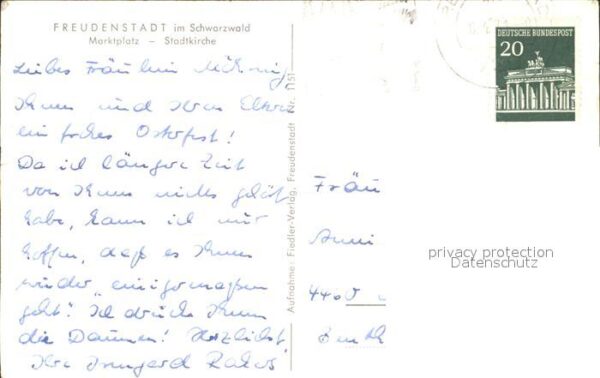 FREUDENSTADT im Schwarzwald
Marktplatz – Stadtkirche
Liebes Fräulein
Ihnen und Ihren Eltern
ein frohes Osterfest!
Da ich längere Zeit
von Ihnen nichts gehört
habe, kann ich nur
hoffen, daß es Ihnen
wieder „einigermaßen
geht". Ich drücke Ihnen
die Daumen! Herzlichst
Ihre Irmgard
Aufnahme: Fiedler-Verlag, Freudenstadt Nr. 151
DEUTSCHE BUNDESPOST
20
Fräu
Anni
4460
privacy protection
Datenschutz